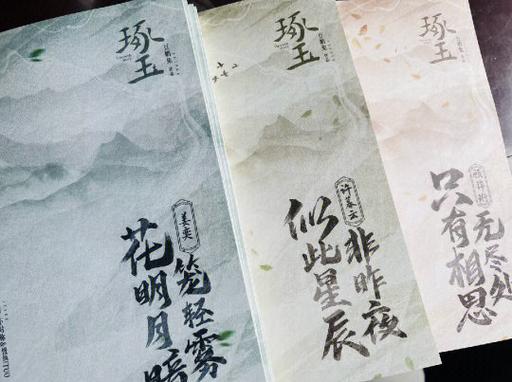 琢玉
姜奕
花明月暗
笼轻雾
琢玉
许暮云
似此星辰
非昨夜
琢玉
只有相思
无尽处